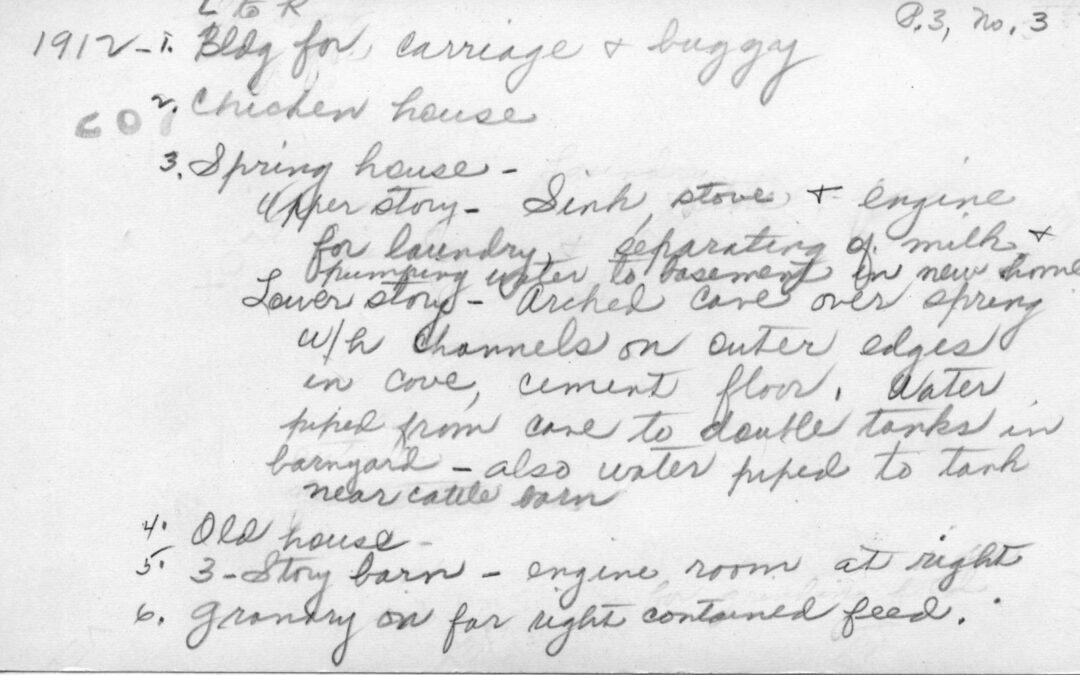 L to R
P.3, No. 3
1912 - 1. Bldg for carriage & buggy
2. Chicken house
60
3. Spring house -
Upper story - Sink, stove & engine
for laundry, separating of milk &
pumping water to basement in new home
Lower story - Arched cave over spring
w/h channels on outer edges
in cove, cement floor. Water
piped from cave to double tanks in
barnyard - also water piped to tank
near cattle barn
4. Old house -
5. 3-Story barn - engine room at right
6. Granary on far right contained feed.